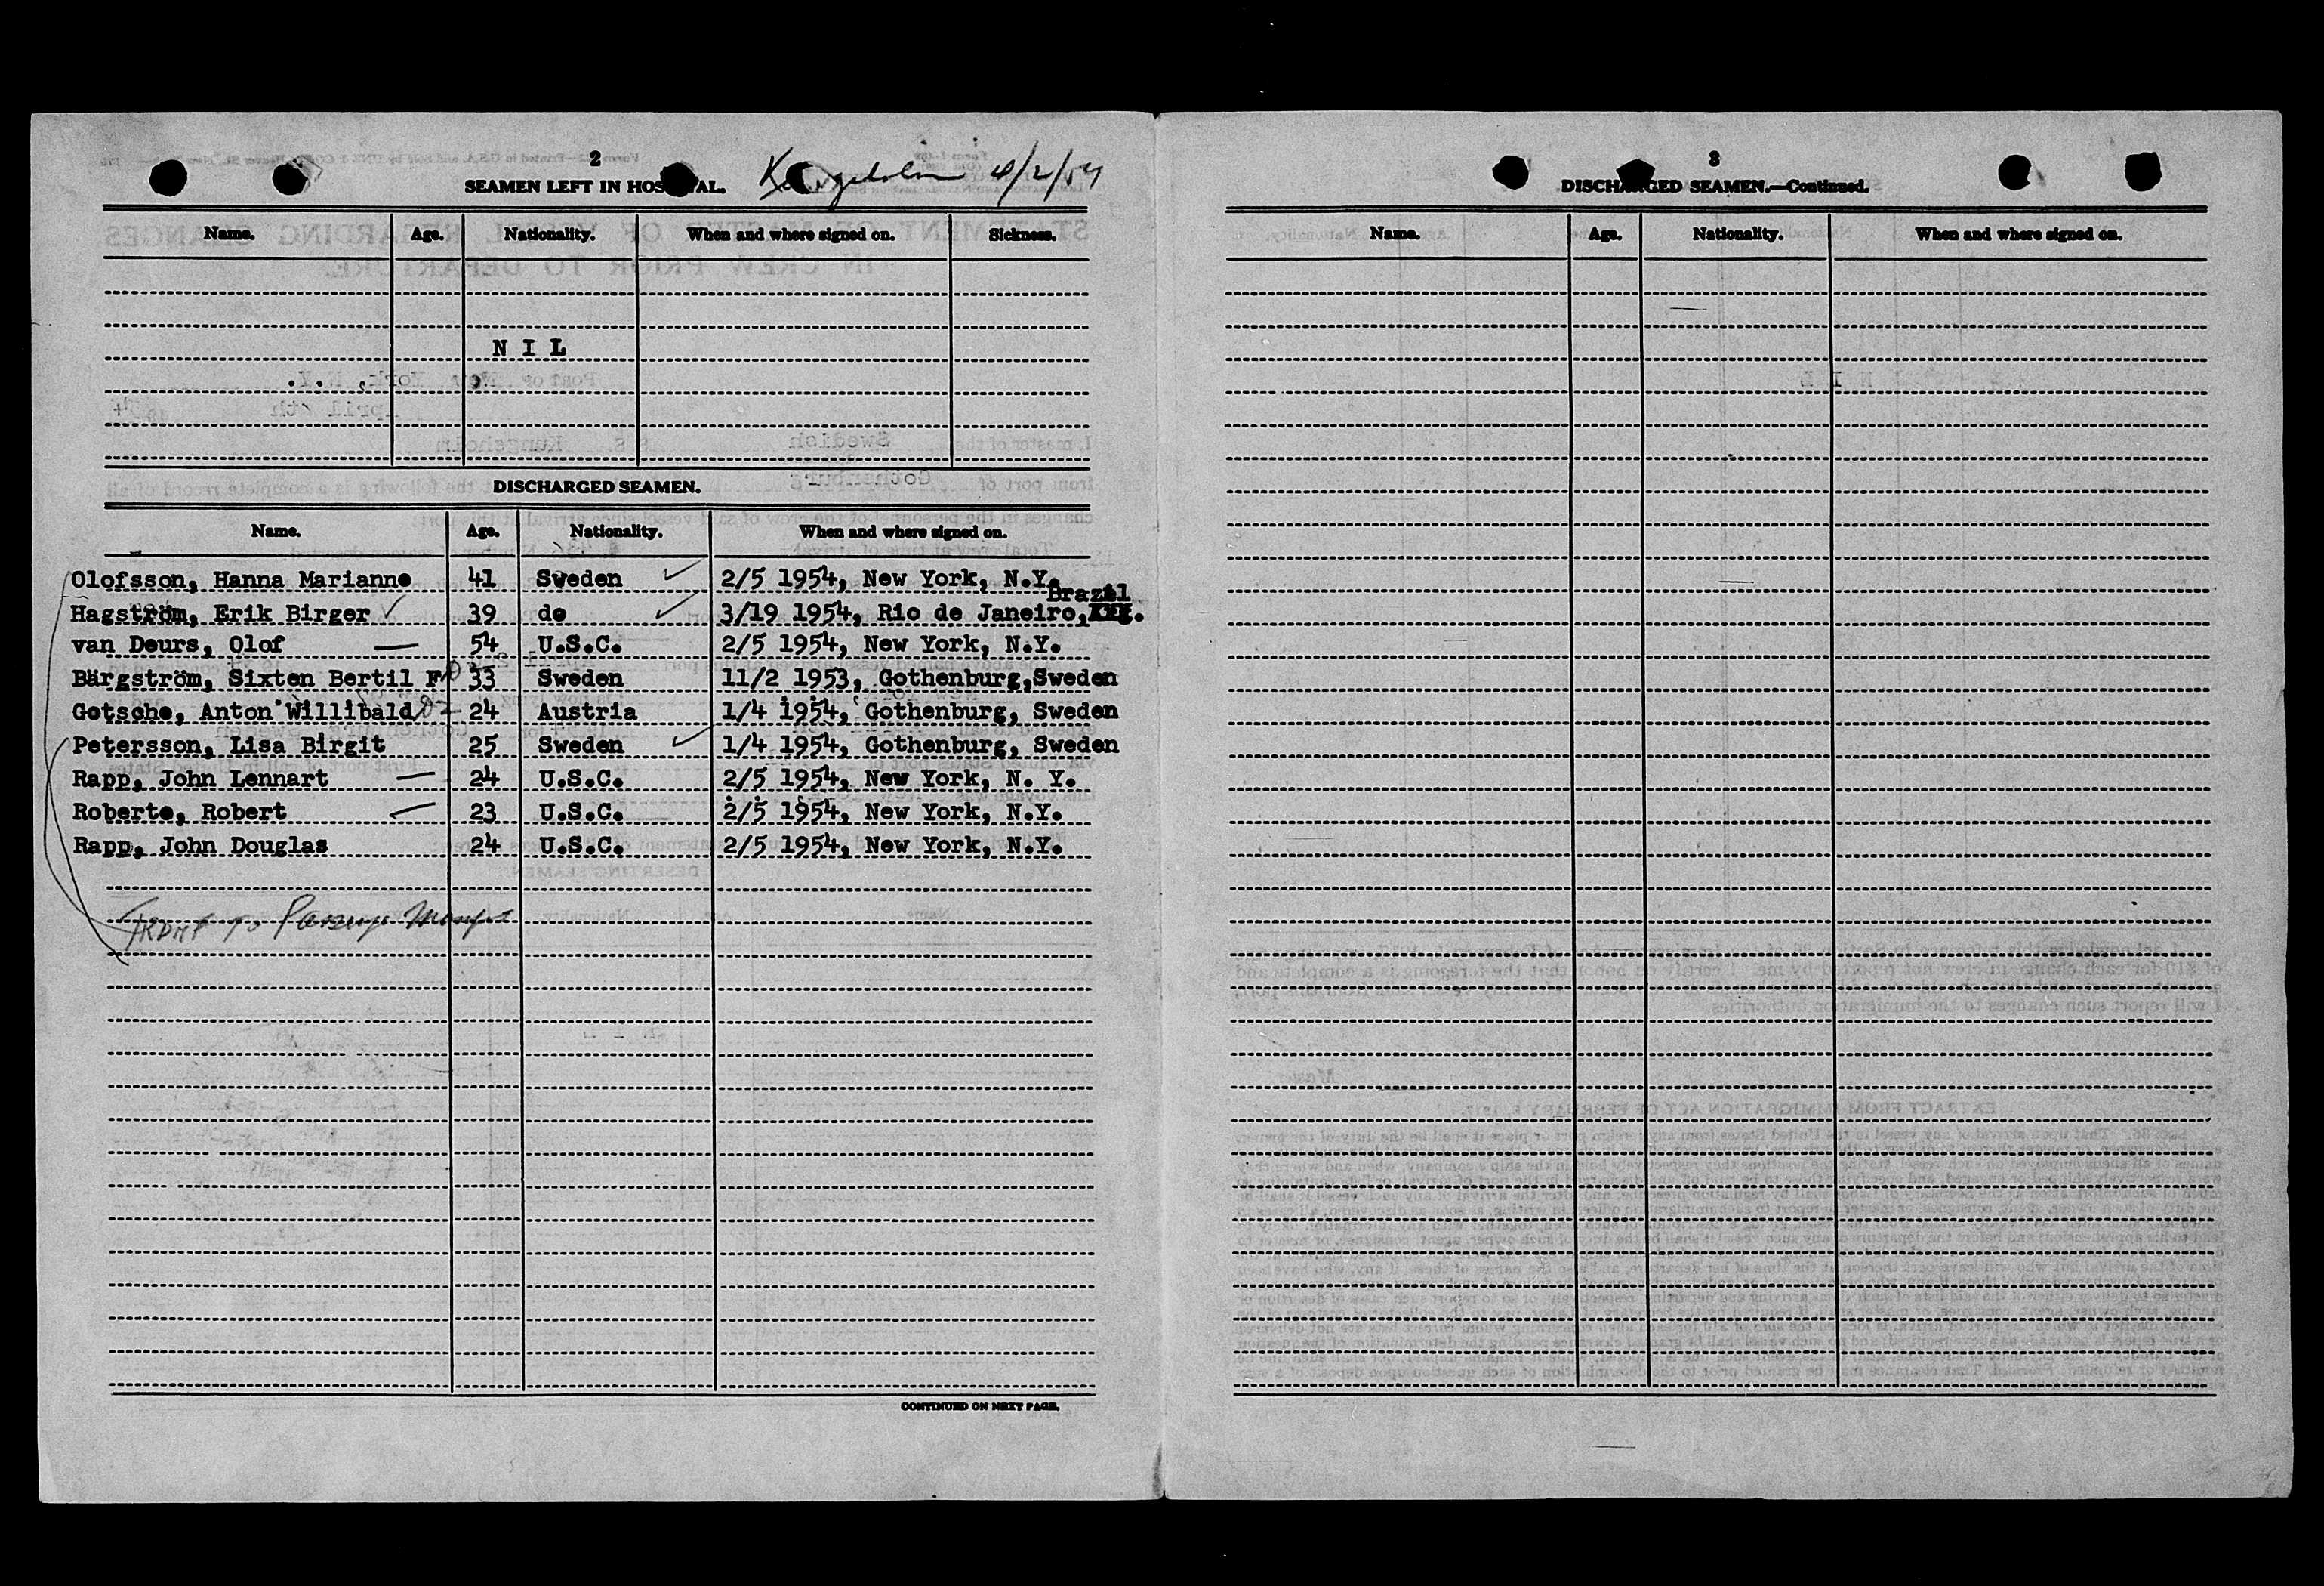 2
SEAMEN LEFT IN HOSPITAL. Kungsholm 4/2/54
Name. Age. Nationality. When and where signed on. Sickness.
N I L
DISCHARGED SEAMEN.
Name. Age. Nationality. When and where signed on.
Olofsson, Hanna Marianne 41 Sweden ✓ 2/5 1954, New York, N.Y.
Brazil
Hagström, Erik Birger ✓ 39 do ✓ 3/19 1954, Rio de Janeiro,
van Deurs, Olof — 54 U.S.C. 2/5 1954, New York, N.Y.
Bärgström, Sixten Bertil F 33 Sweden 11/2 1953, Gothenburg,Sweden
Gotsche, Anton Willibald 24 Austria 1/4 1954, Gothenburg, Sweden
Petersson, Lisa Birgit 25 Sweden ✓ 1/4 1954, Gothenburg, Sweden
Rapp, John Lennart — 24 U.S.C. 2/5 1954, New York, N. Y.
Roberto, Robert — 23 U.S.C. 2/5 1954, New York, N.Y.
Rapp, John Douglas 24 U.S.C. 2/5 1954, New York, N.Y.
To
CONTINUED ON NEXT PAGE.
3
DISCHARGED SEAMEN.—Continued.
Name. Age. Nationality. When and where signed on.